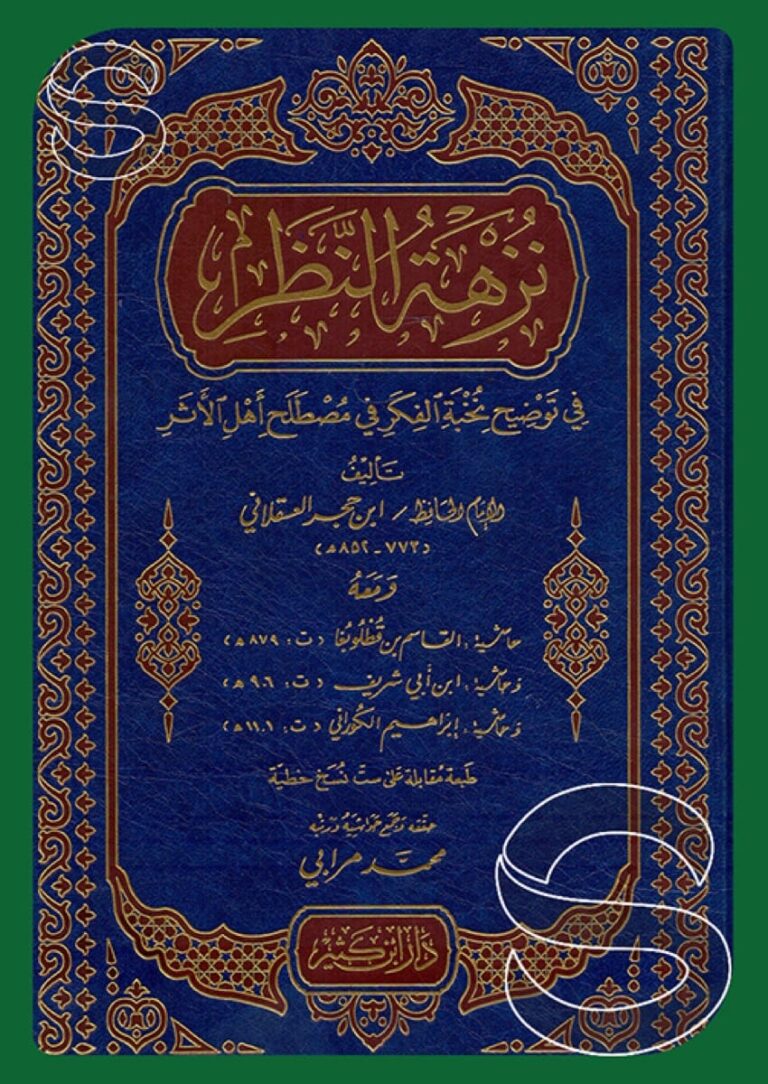 نُزْهَةُ النَّظَرِ
فِي تَوْضِيحِ نُخْبَةِ الفِكَرِ فِي مُصْطَلَحِ أَهْلِ الأَثَرِ
تَأْلِيفُ
الإمَام الحَافِظ / ابن حجر العسقلاني
(٧٧٣ - ٨٥٢ه)
وَمَعَهُ
حاشية : القاسم بن قُطْلُوبُغا (ت: ٨٧٩ه)
وحاشية : ابن أبي شريف (ت: ٩٠٦ه)
وحاشية : إبراهيم الكُوراني (ت: ١١٠١ه)
طبعة مُقابلة على ستّ نُسَخ خطية
حققه وجمع حواشيه ورتبه
محمَّد مرابي
دَار ابن كثير